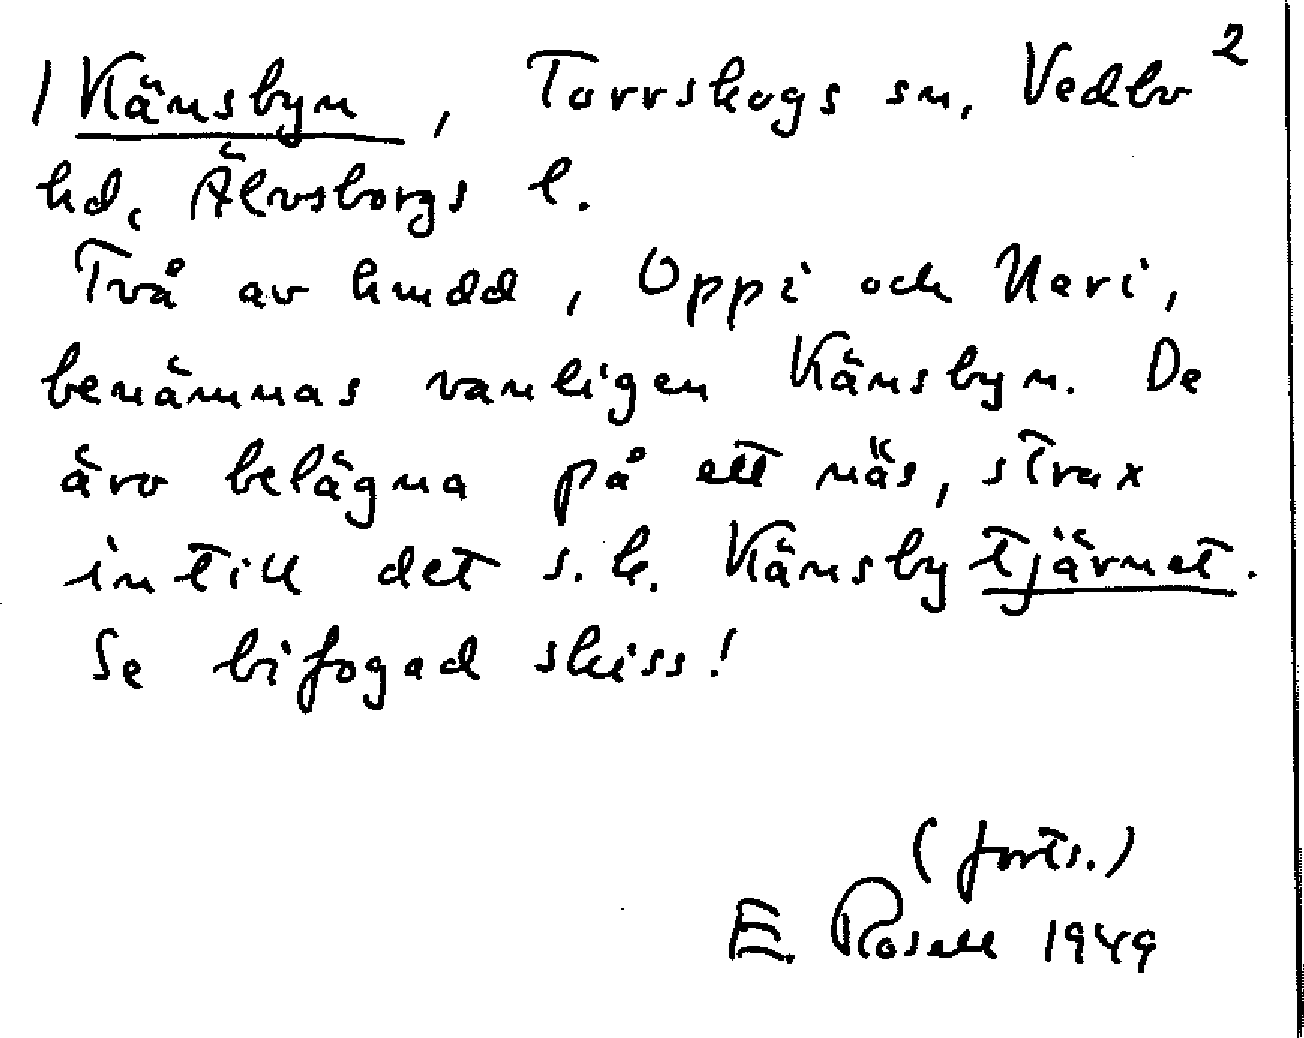 / Känsbyn, Torrskogs sn, Vedbo 2
hd, Älvsborgs l.
Två av hmdd, Uppi och Neri,
benämnas vanligen Känsbyn. De
äro belägna på ett näs, strax
intill det s.k. Känsbytjärnet.
Se bifogad skiss!
(forts.)
E. Rosell 1949